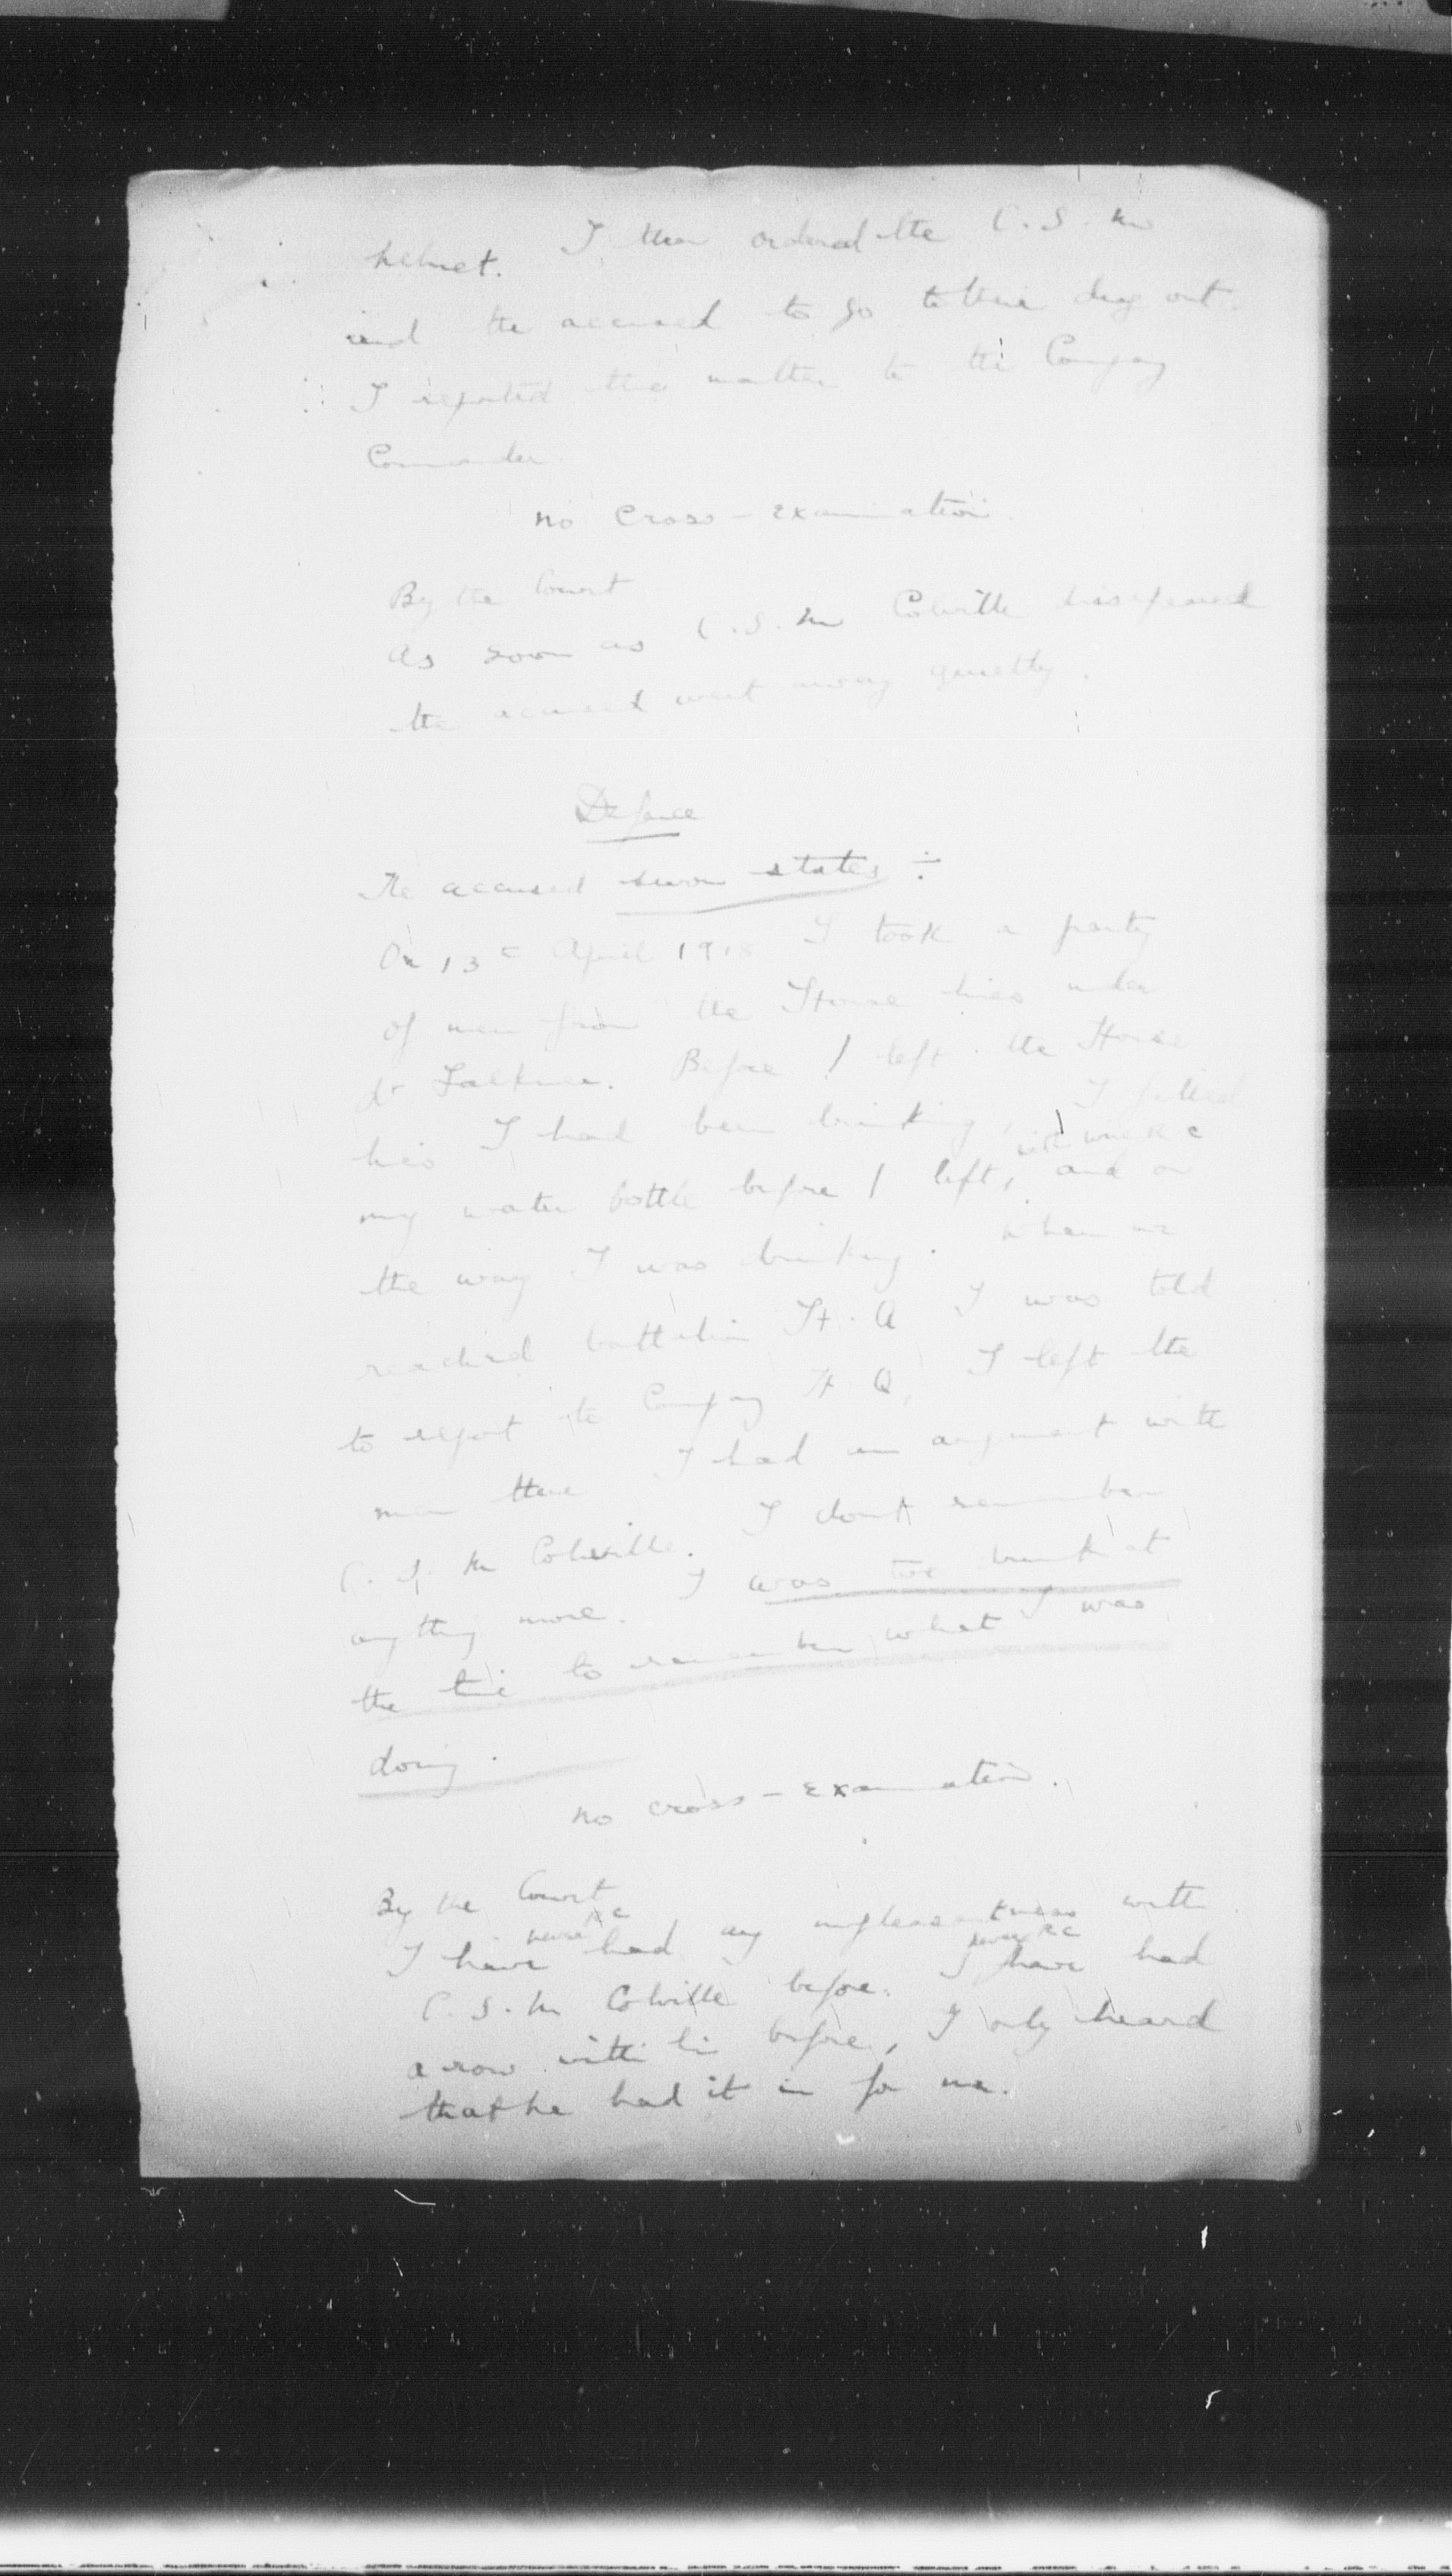 helmet. I then ordered the C.S.M
and the accused to go to their dug out.
I reported the matter to the Company
Commander.
No Cross-Examination.
By the Court
As soon as C.S.M Colville disappeared
the accused went away quietly.
Defence
The accused sworn states ÷
On 13th April 1918 I took a party
of men from the Horse lines under
Lt. Before I left the Horse
lines I had been drinking, I filled
with wine RC
my water bottle before I left, and on
the way I was drinking. When we
reached battalion H.Q I was told
to report to Company H Q, I left the
men there I had an argument with
C.S.M Colville. I dont remember
anything more. I was too drunk at
the time to remember what I was
doing.
No cross-examination.
By the Court
never RC
I have had any unpleasantness with
never RC
C.S.M Colville before. I have had
a row with him before, I only heard
that he had it in for me.